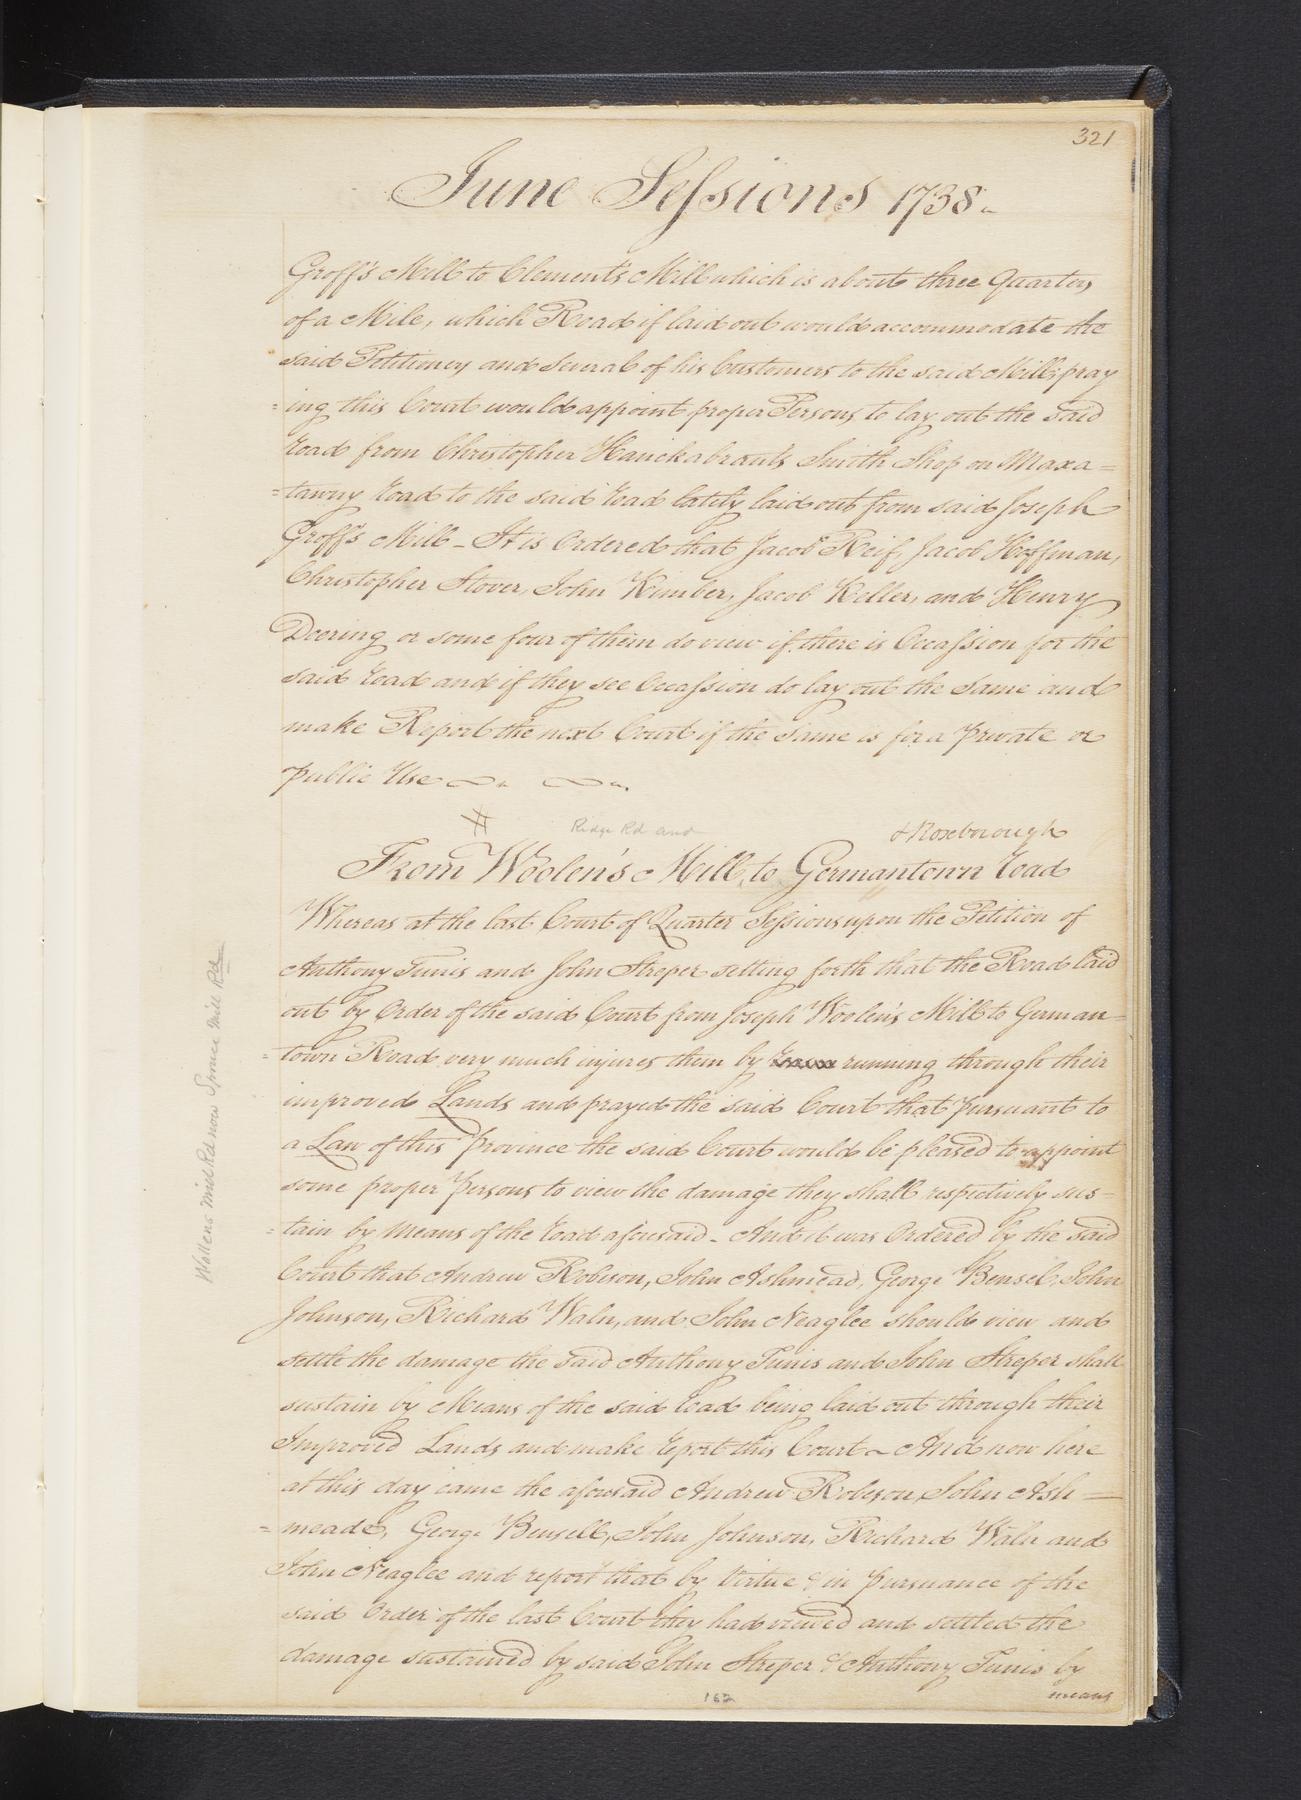 321
June Sessions 1738
Groff's Mill to Clement's Mill which is about three Quarters
of a Mile, which Road if laid out would accommodate the
said Petitioner and several of his Customers to the said Mill; pray
=ing this Court would appoint proper Persons to lay out the said
Road from Christopher Hanckabrant's Smith Shop on Maxa=
=tawny Road to the said Road lately laid out from said Joseph
Groff's Mill - It is Ordered that Jacob Reif, Jacob Hoffman,
Christopher Stover, John Kimber, Jacob Keller, and Henry
Deering or some four of them do view if there is Occassion for the
said Road and if they see Occassion do lay out the same and
make Report the next Court if the same is for a private or
public Use
# Ridge Rd and & Roxborough
From Woolen's Mill to Germantown Road
Whereas at the last Court of Quarter Sessions upon the Petition of
Anthony Tunis and John Streper setting forth that the Road laid
out by Order of the said Court from Joseph Woolen's Mill to German=
=town Road very much injures them by running through their
improved Lands and prayed the said Court that pursuant to
a Law of this Province the said Court would be pleased to appoint
some proper Persons to view the damage they shall respectively sus=
=tain by Means of the Road aforesaid - And it was Ordered by the said
Court that Andrew Robeson, John Ashmead, George Bensel, John
Johnson, Richard Waln, and John Neaglee should view and
settle the damage the said Anthony Tunis and John Streper shall
sustain by Means of the said Road being laid out through their
Improved Lands and make report this Court - And now here
at this day came the aforesaid Andrew Robeson, John Ash
=meade, George Bensell, John Johnson, Richard Waln and
John Neaglee and report that by Virtue & in pursuance of the
said Order of the last Court they had viewed and settled the
damage sustained by said John Streper & Anthony Tunis by
means
162
Wollens Mill Rd now Spruce Mill Rd